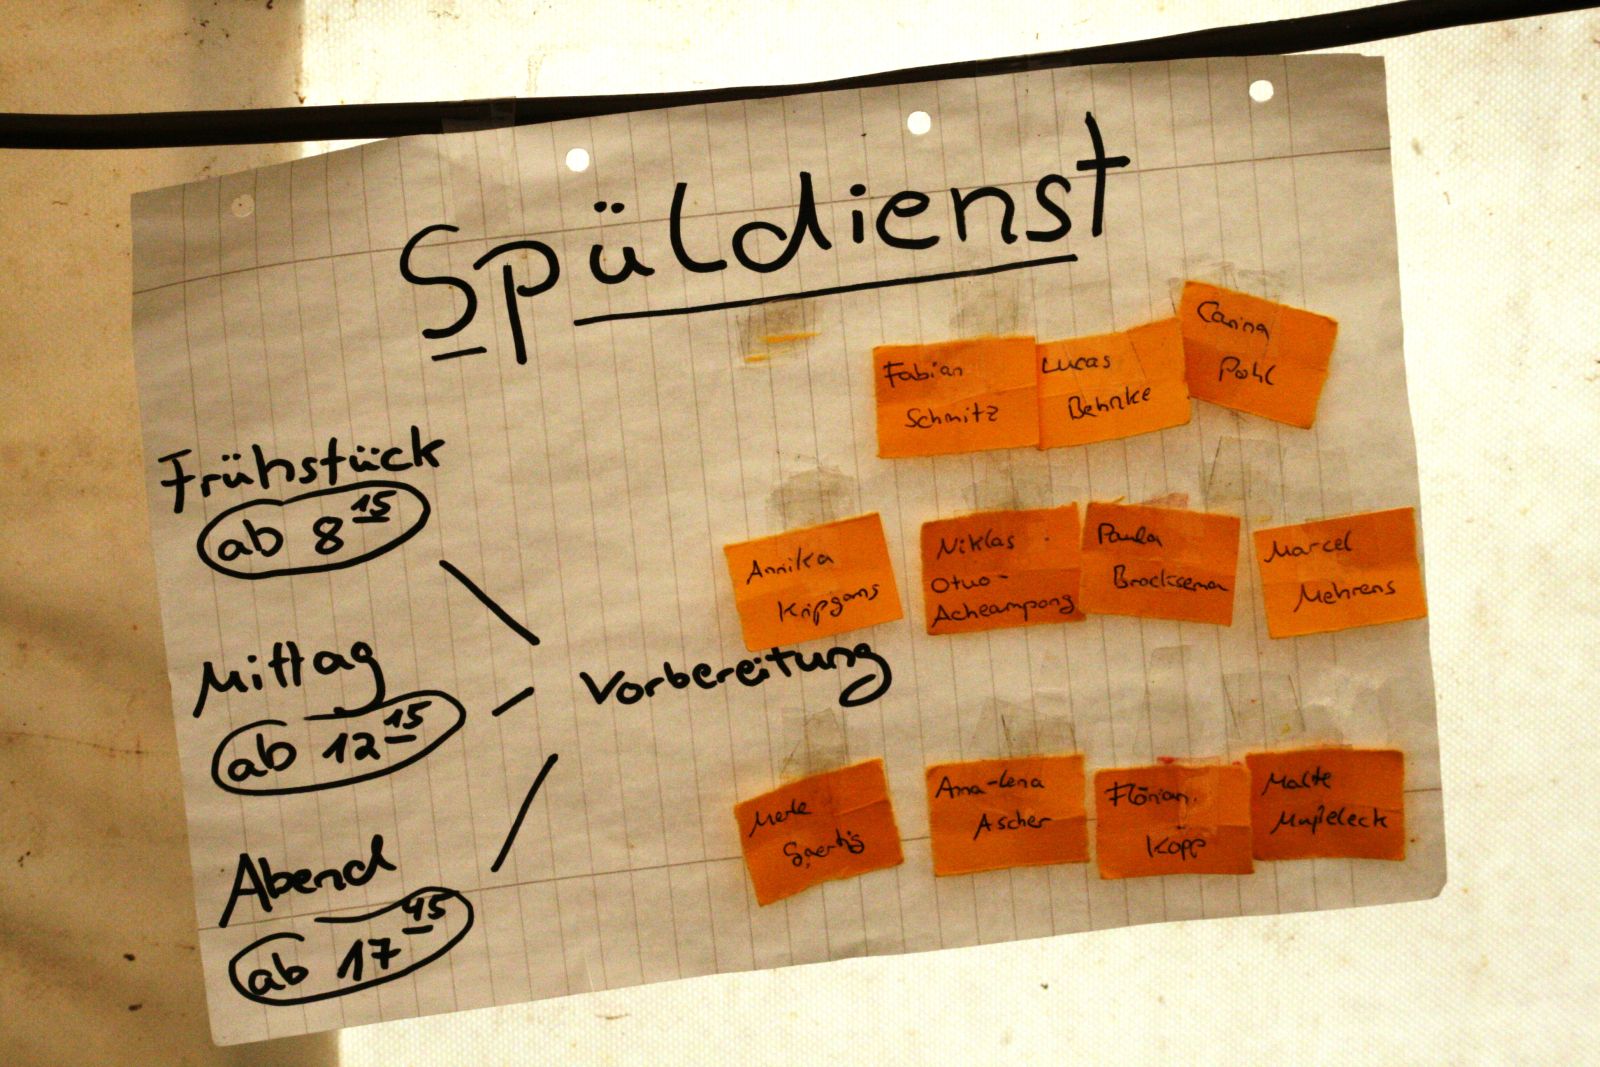 Spüldienst
Fabian
Schmitz
Lucas
Behnke
Carina
Pohl
Frühstück
ab 8 15
Annika
Kripgans
Niklas
Otuo-
Acheampong
Paula
Marcel
Mehrens
Mittag
ab 12 15
Vorbereitung
Merle
Anna-Lena
Ascher
Florian
Kopp
Malte
Abend
ab 17 45